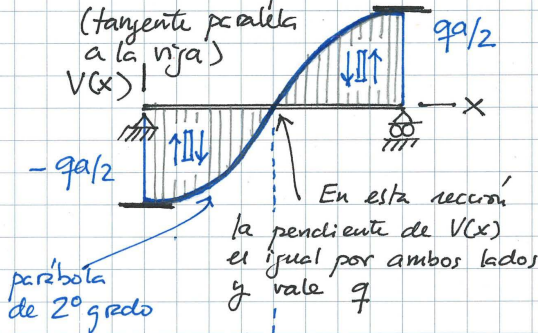 (tangente paralela
a la viga)
qa/2
V(x)
x
- qa/2
En esta sección
la pendiente de V(x)
es igual por ambos lados
y vale q
parábola
de 2º grado